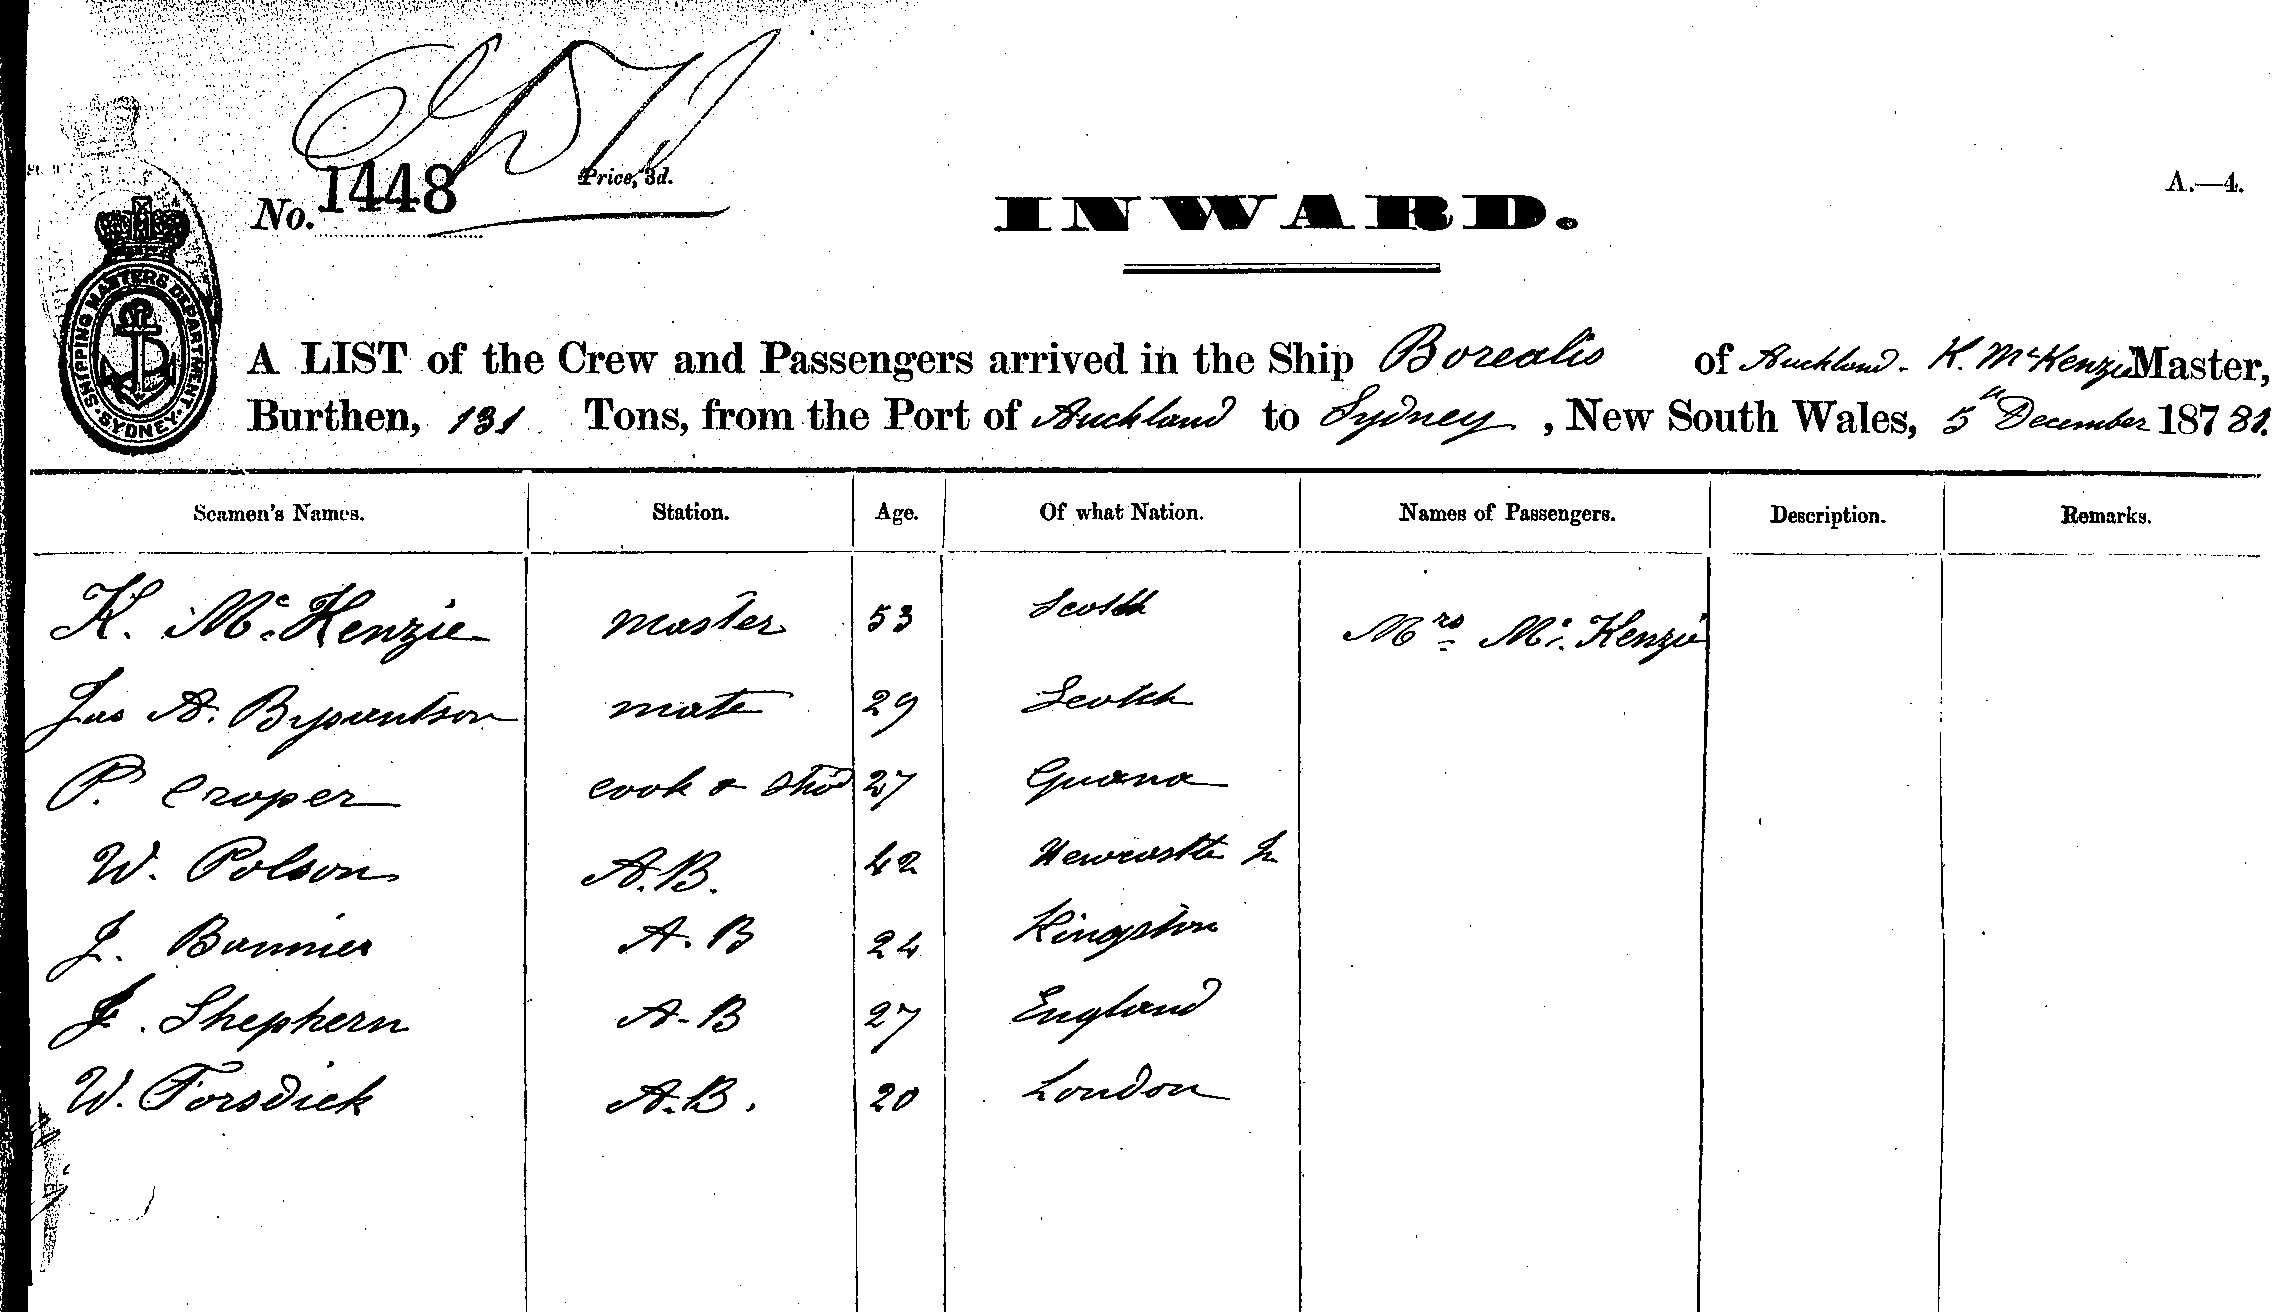 No. 1448 Price, 3d.
INWARD.
A.—4.
SHIPPING MASTERS DEPARTMENT. SYDNEY
A LIST of the Crew and Passengers arrived in the Ship Borealis of Auckland. K. McKenzie Master,
Burthen, 131 Tons, from the Port of Auckland to Sydney, New South Wales, 5th December 187 81.
Seamen's Names. Station. Age. Of what Nation. Names of Passengers. Description. Remarks.
K. McKenzie master 53 Scotch Mrs McKenzie
Jas A. Bryantson mate 29 Scotch
P. Croper cook & Stwd 27 Guana
W. Polson A.B. 42 Newcastle
J. Bannier A.B 24 Kingston
J. Shephern A-B 27 England
W. Forsdick A.B. 20 London